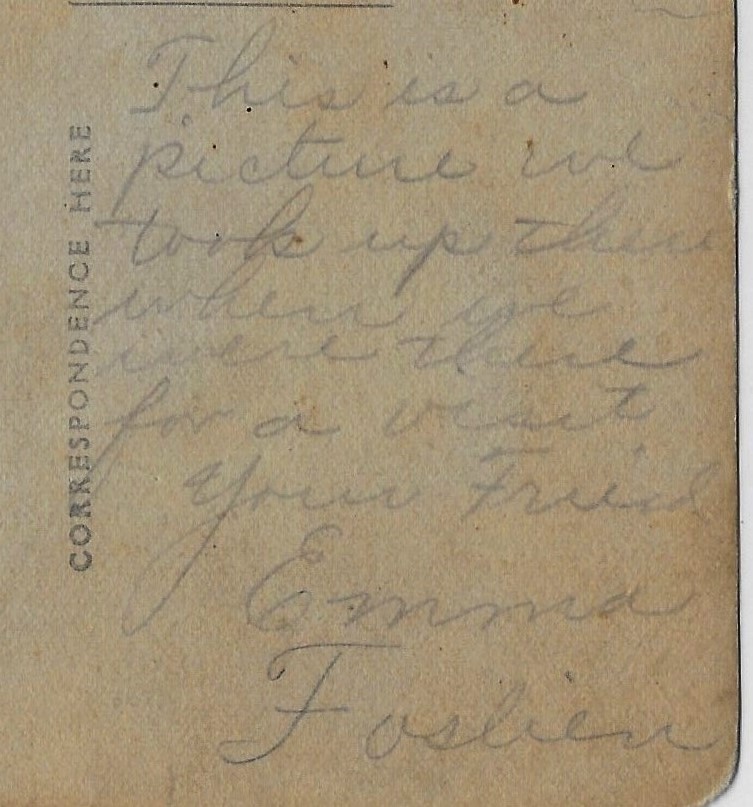 CORRESPONDENCE HERE
This is a
picture we
took up there
when we
were there
for a visit
Your Friend
Emma
Foslien